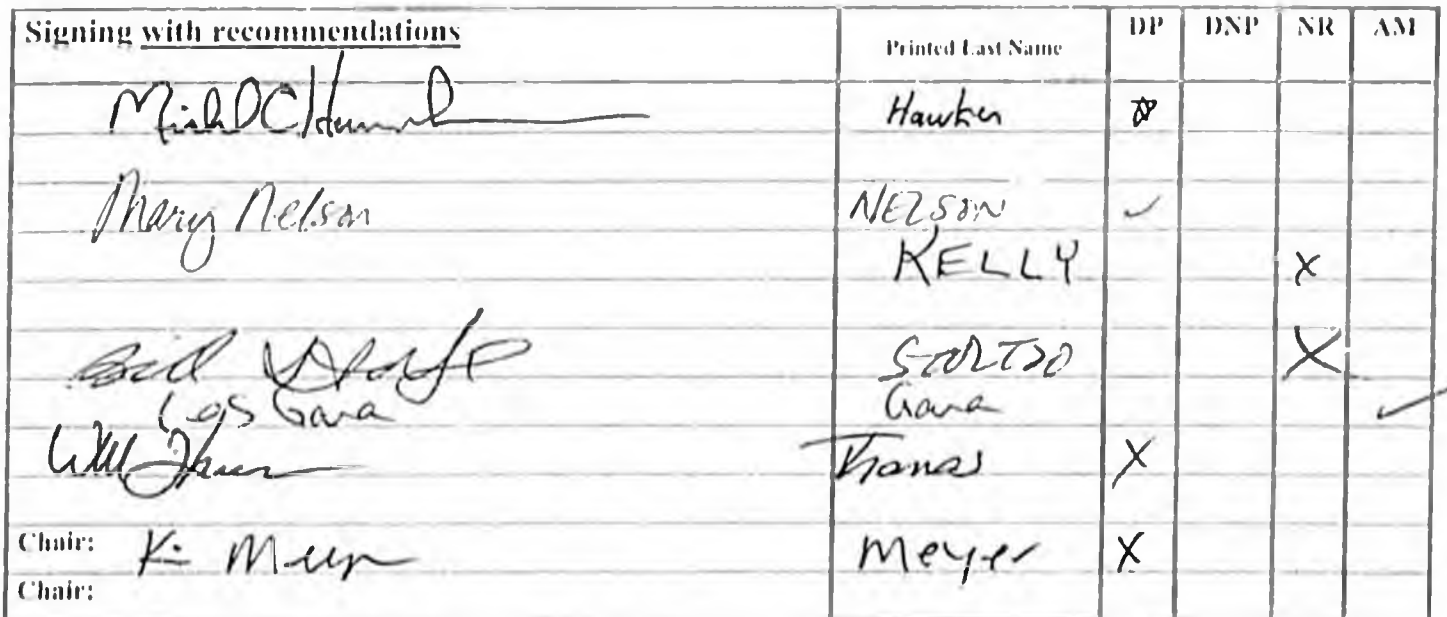 Signing with recommendations Printed Last Name DP DNP NR AM
Hawker
Mary Nelson NELSON ✓
KELLY X
X
Les Gara Gara ✓
Thomas X
Chair: K Meyer Meyer X
Chair: